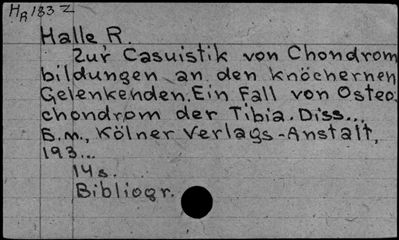 HR 183 Z
Halle R.
Zur Casuistik von Chondrom
bildungen an den knöchernen
Gelenkenden. Ein Fall von Osteo.
chondrom der Tibia. Diss...
Б.m., Kölner Verlags-Anstalt,
193...
14s.
Bibliogr.